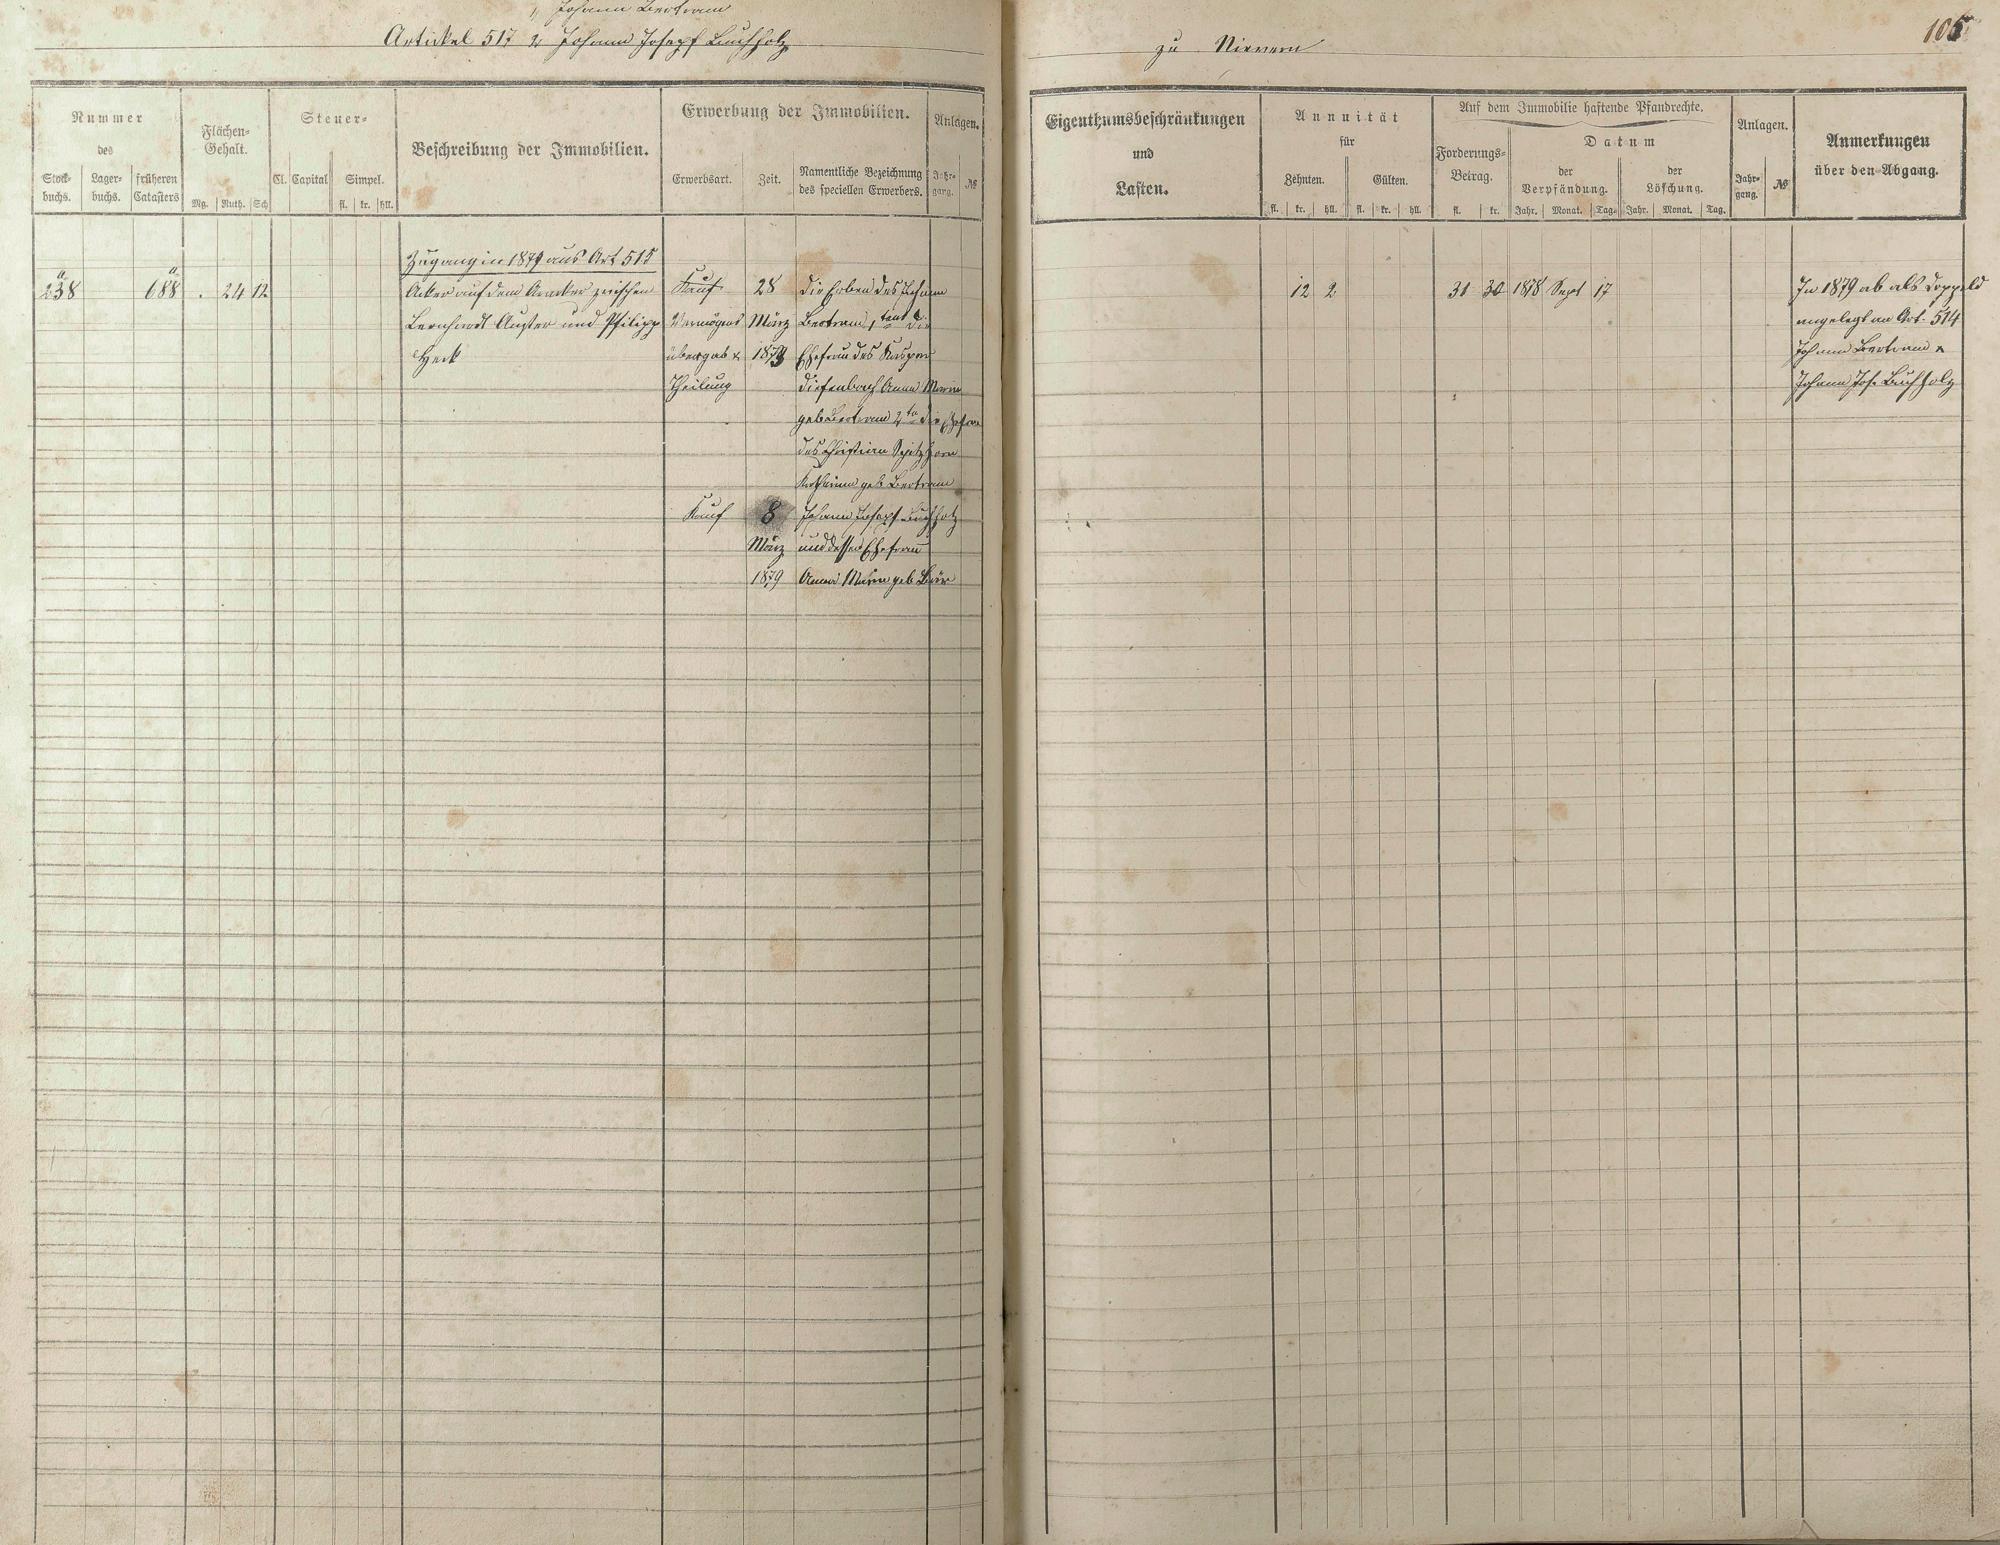 1, Johann Bertram
Artickel 517 2, Johann Josepf Buchholz
zu Nievern
105
Nummer
des
Stock-
buchs.
Lager-
buchs.
früheren
Catasters
Flächen-
Gehalt.
Mg. Ruth. Sch
Steuer-
Cl. Capital Simpel.
fl. kr. hll.
Beschreibung der Immobilien.
Erwerbung der Immobilien.
Erwerbsart. Zeit.
Namentliche Bezeichnung
des speciellen Erwerbers.
Anlagen.
Jahr-
gang. №
Eigenthumsbeschränkungen
und
Lasten.
Annuität
für
Zehnten. Gülten.
fl. kr. hll. fl. kr. hll.
Auf dem Immobilie haftende Pfandrechte.
Forderungs-
Betrag.
fl. kr.
Datum
der
Verpfändung.
der
Löschung.
Jahr. Monat. Tag. Jahr. Monat. Tag.
Anlagen.
Jahr-
gang. №
Anmerkungen
über den Abgang.
Zugang in 1879 aus Art 515
a a
238 688 . 24 12
Acker auf dem zwischen
Bernhardt und Philipp
Heck
Kauf 28 die Erben des Johann
Vermögens März Bertram, 1, die
übergab & 1873 Ehefrau des Kaspar
Theilung Diefenbach Anna Maria
geb Bertram 2te die Ehefrau
des Christian Spitzhorn
Katharina geb Bertram
Kauf 8 Johann Josepf Buchholz
März und dessen Ehefrau
1879 Anna Maria geb Bär
12 2
31 30 1878 Sept 17
In 1879 ab als Doppeld
angelegt an Art. 514
Johann Bertram &
Johann Jos. Buchholz